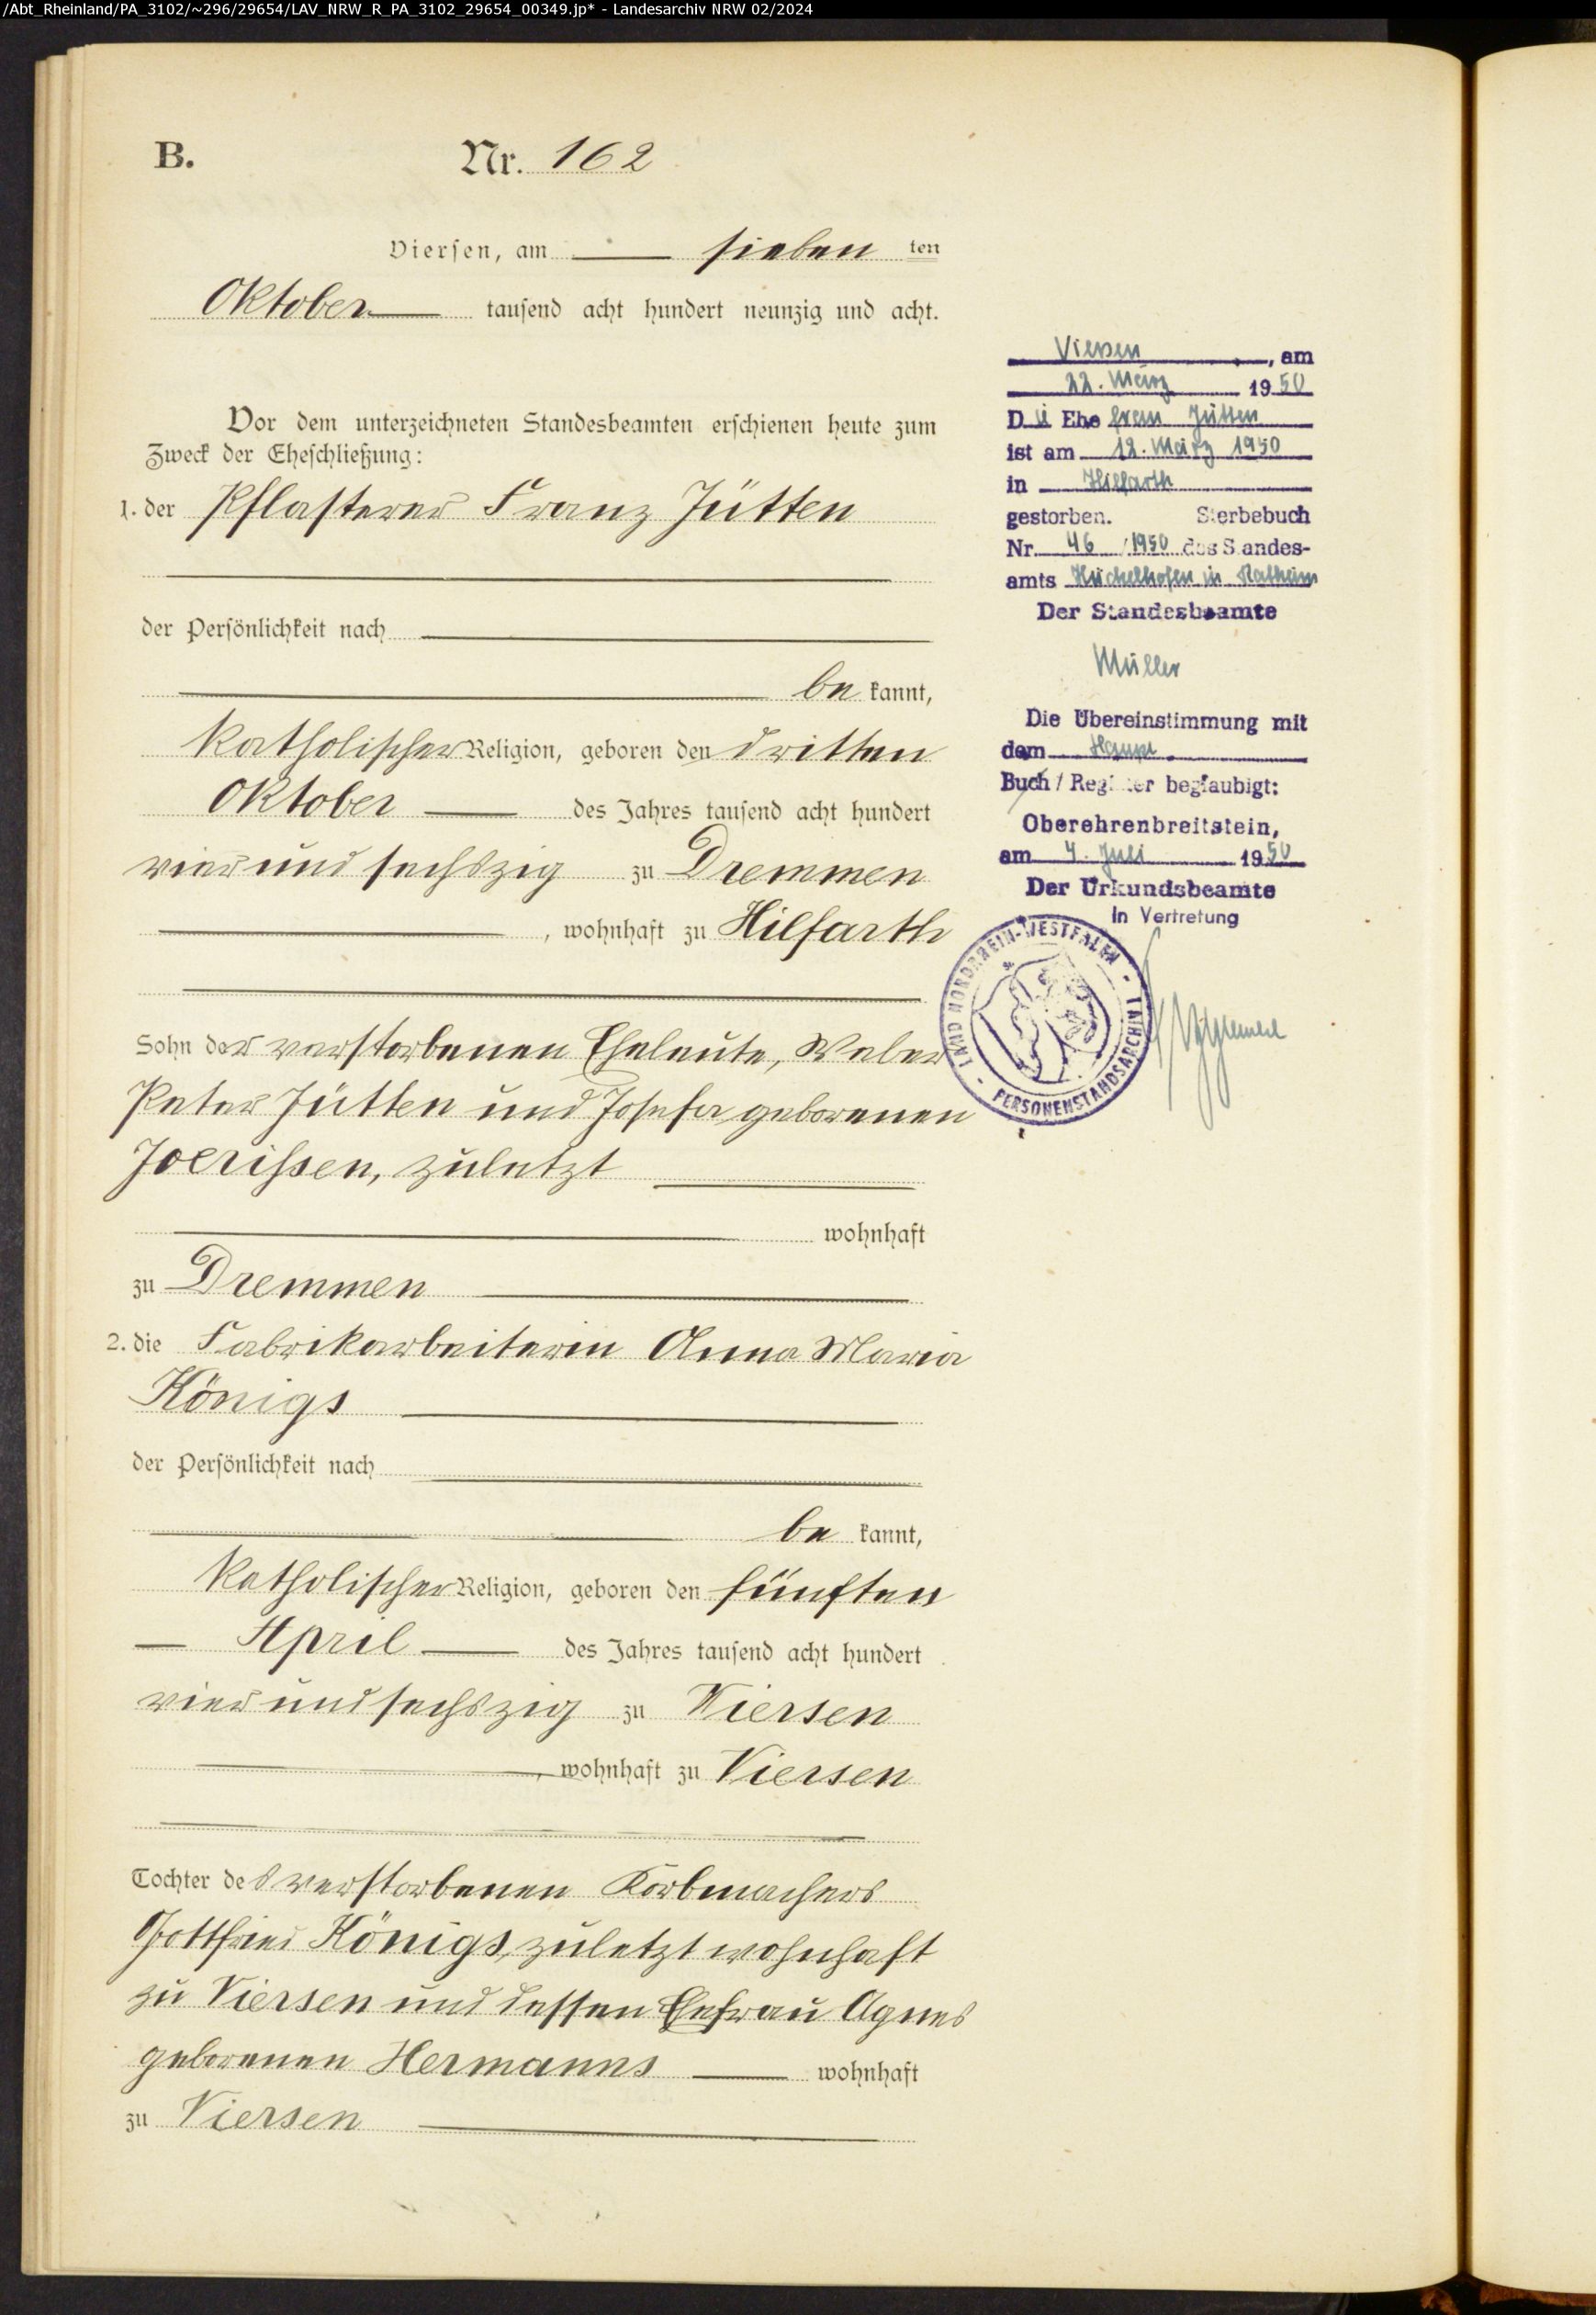 /Abt_Rheinland/PA_3102/~296/29654/LAV_NRW_R_PA_3102_29654_00349.jp* - Landesarchiv NRW 02/2024
B. Nr. 162
Viersen, am sieben ten
Oktober tausend acht hundert neunzig und acht.
Vor dem unterzeichneten Standesbeamten erschienen heute zum
Zweck der Eheschließung:
1. der Pflasterer Franz Jütten
der Persönlichkeit nach
be kannt,
katholischer Religion, geboren den dritten
Oktober des Jahres tausend acht hundert
vier und sechszig zu Dremmen
, wohnhaft zu Hilfarth
Sohn der verstorbenen Eheleute, Weber
Peter Jütten und Josefa geborenen
Joerissen, zuletzt
wohnhaft
zu Dremmen
2. die Fabrikarbeiterin Anna Maria
Königs
der Persönlichkeit nach
be kannt,
katholischer Religion, geboren den fünften
April des Jahres tausend acht hundert
vier und sechszig zu Viersen
, wohnhaft zu Viersen
Tochter des verstorbenen Korbmachers
Gottfried Königs, zuletzt wohnhaft
zu Viersen und dessen Ehefrau Agnes
geborenen Hermanns wohnhaft
zu Viersen
Viersen, am
22. März 1950
Die Ehefrau Jütten
ist am 12. März 1950
in Hilfarth
gestorben. Sterbebuch
Nr. 46 /1950 des Standes-
amts Hückelhofen in Ratheim
Der Standesbeamte
Müller
Die Übereinstimmung mit
dem Haupt
Buch / Register beglaubigt:
Oberehrenbreitstein,
am 4. Juli 1950
Der Urkundsbeamte
In Vertretung
LAND NORDRHEIN-WESTFALEN
- PERSONENSTANDSARCHIV I -